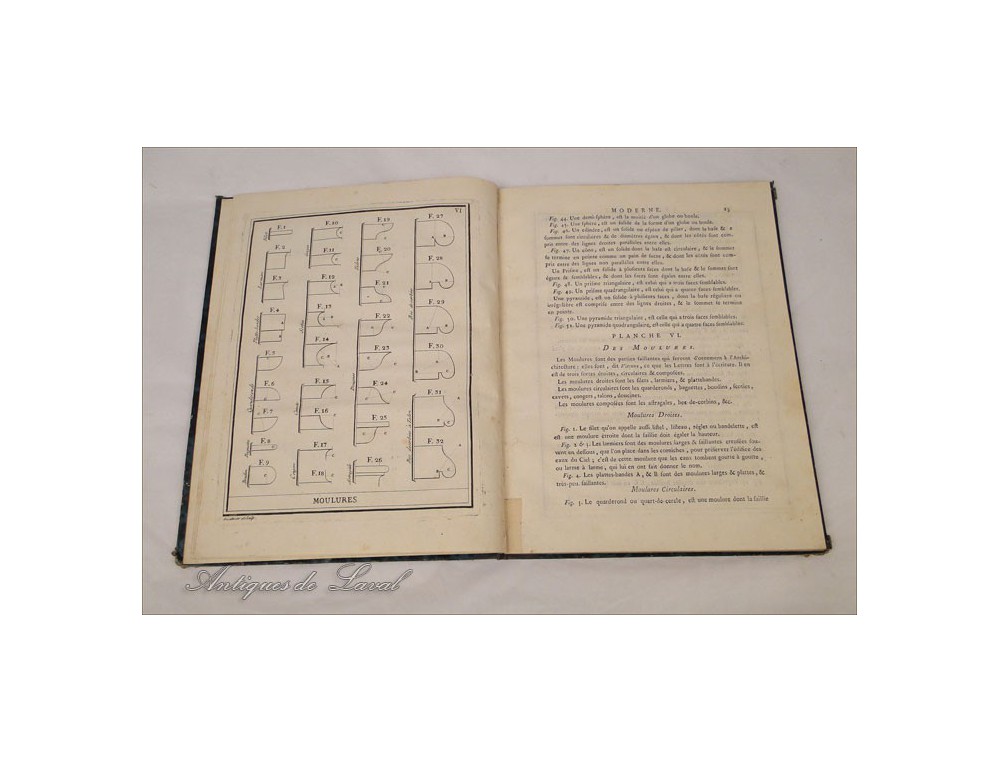 VI
F.1
F.10
F.19
F.27
F.2
F.11
F.20
F.28
F.3
F.12
F.21
F.29
F.4
F.13
F.22
F.30
F.5
F.14
F.23
F.31
F.6
F.15
F.24
F.32
F.7
F.16
F.25
F.8
F.17
F.26
F.9
F.18
MOULURES
MODERNE.
Fig. 44. Une demi-sphère, est la moitié d'un globe ou boule.
Fig. 45. Une sphère, est un solide de la forme d'un globe ou boule.
Fig. 46. Un cylindre, est un solide en espece de pilier, dont la base & s
sommet sont circulaires & de diametres égaux, & dont les côtés sont com-
pris entre des lignes droites paralleles entre elles.
Fig. 47. Un cône, est un solide dont la base est circulaire, & le sommet
se termine en pointe comme un pain de sucre, & dont les côtés sont com-
pris entre des lignes non paralleles entre elles.
Un Prisme, est un solide à plusieurs faces dont la base & le sommet sont
égaux & semblables, & dont les faces sont égales entre elles.
Fig. 48. Un prisme triangulaire, est celui qui a trois faces semblables.
Fig. 49. Un prisme quadrangulaire, est celui qui a quatre faces semblables.
Une pyramide, est un solide à plusieurs faces, dont la base réguliere ou
irréguliere est comprise entre des lignes droites, & le sommet se termine
en pointe.
Fig. 50. Une pyramide triangulaire, est celle qui a trois faces semblables.
Fig. 51. Une pyramide quadrangulaire, est celle qui a quatre faces semblables.
PLANCHE VI.
DES MOULURES.
Les Moulures sont des petites saillantes qui servent d'ornemens à l'Archi-
chitecture: elles sont, dit d'Aviler, ce que les Lettres sont à l'écriture. Il en
est de trois sortes droites, circulaires & composées.
Les moulures droites sont les filets, larmiers, & plattebandes.
Les moulures circulaires sont les quarderonds, baguettes, boudins, scoties,
cavets, congez, talons, doucines.
Les moulures composées sont les astragales, bec-de-corbins, &c.
Moulures Droites.
Fig. 1. Le filet qu'on appelle aussi listel, listeau, réglet ou bandelette, est
est une moulure étroite dont la saillie doit égaler la hauteur.
Fig. 2 & 3. Les larmiers sont des moulures larges & saillantes creusées sou-
vent en dessous, que l'on place dans les corniches, pour préserver l'édifice des
eaux du Ciel; c'est de cette moulure que les eaux tombent goutte à goutte,
ou larme à larme, qui lui en ont fait donner le nom.
Fig. 4. Les plattes-bandes A, & B sont des moulures larges & plattes, &
très-peu saillantes.
Moulures Circulaires.
Fig. 5. Le quarderond ou quart-de-cercle, est une moulure dont la saillie
Antiques de Laval